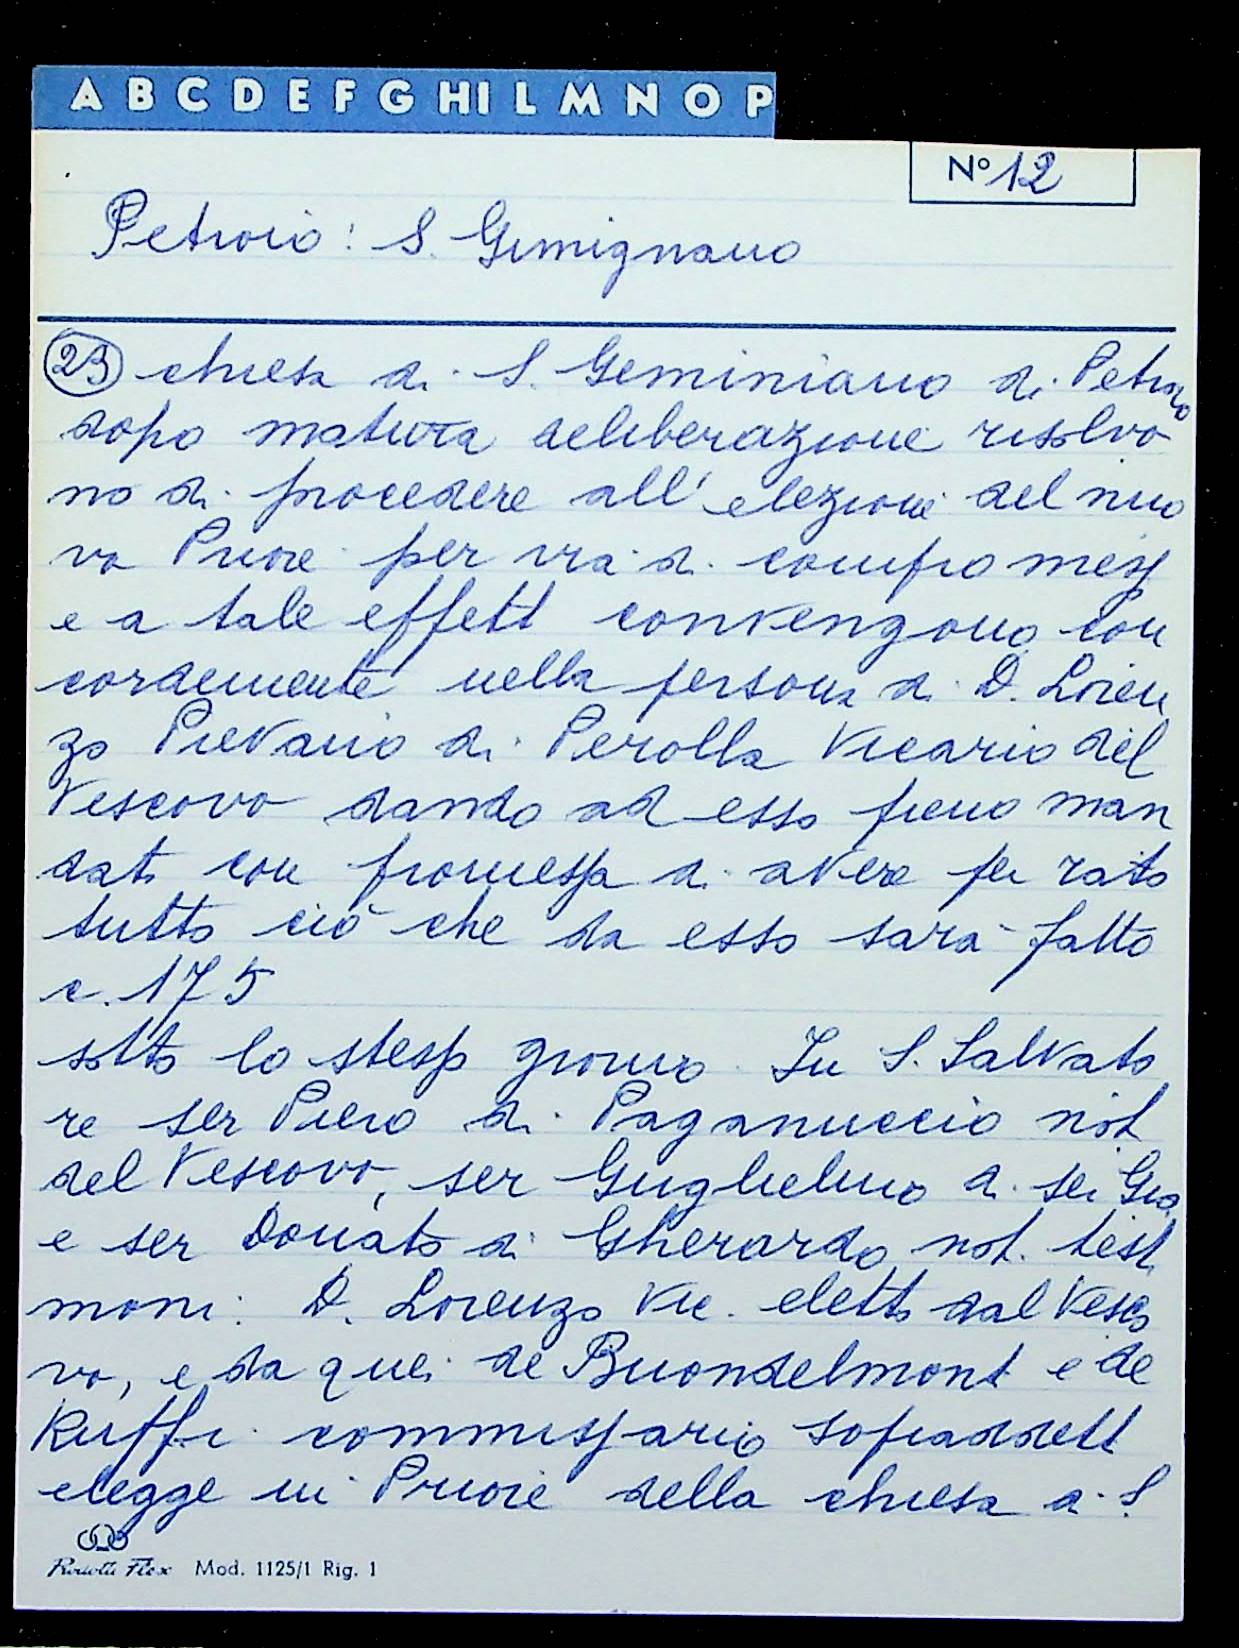 A B C D E F G HI L M N O P
N° 12
Petroio: S. Gimignano
23 chiesa di S. Geminiano di Petroio
dopo matura deliberazione risolvo
no di procedere all'elezione del nuo
vo Priore per via di compromesso
e a tale effett convengono con
cordemente nella persona di D. Loren
zo Pievano di Perolla Vicario del
Vescovo dando ad esso pieno man
dato con promessa di avere per rato
tutto ciò che da esso sarà fatto
c. 175
sotto lo stesso giorno In S. Salvato
re ser Piero di Paganuccio not
del Vescovo, ser Guglielmo di ser Gio
e ser Donato di Gherardo not. testi
moni: D. Lorenzo Vic. eletto dal Vesco
vo, e da quei de Buondelmonti e de
Ruffi commissario sopraddett
elegge in Priore della chiesa di S.
Mod. 1125/1 Rig. 1